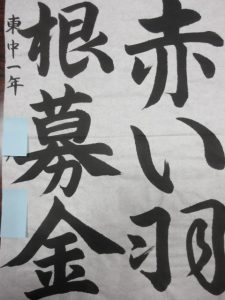 赤い羽
根募金
東中一年